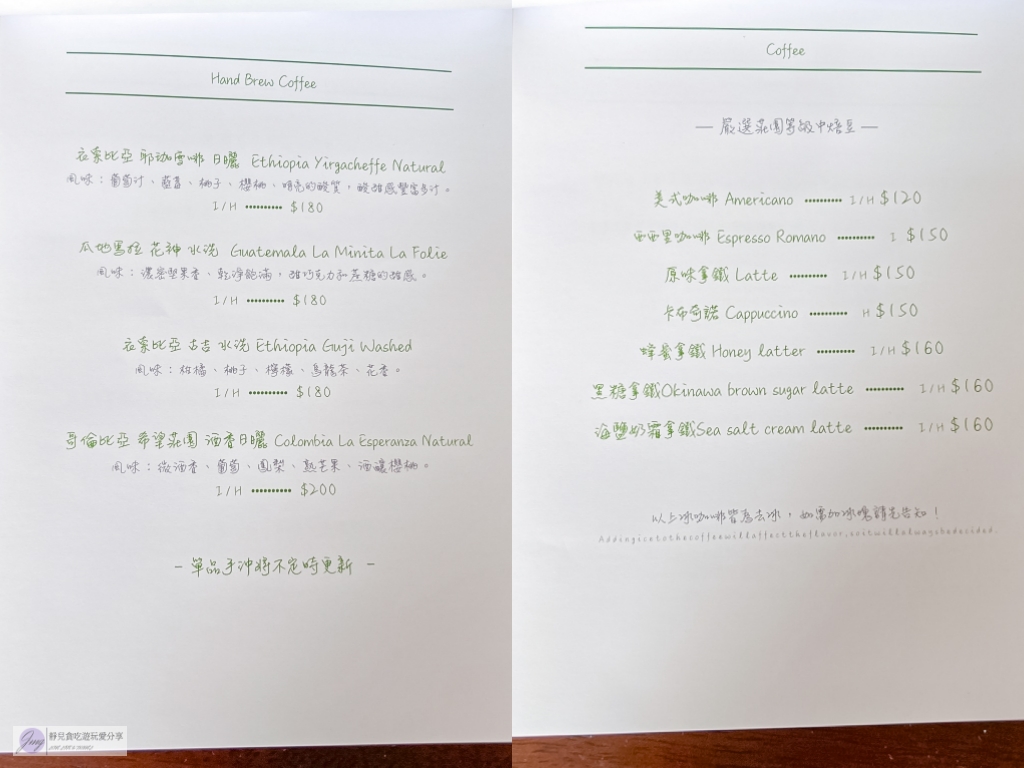 Hand Brew Coffee
衣索比亞 耶珈雪啡 日曬 Ethiopia Yirgacheffe Natural
風味：葡萄汁、藍莓、柚子、櫻桃、明亮的酸質，酸甜感豐富多汁。
I/H •••••••••• $180
瓜地馬拉 花神 水洗 Guatemala La Minita La Folie
風味：濃密堅果香、乾淨飽滿，甜巧克力和蔗糖的甜感。
I/H •••••••••• $180
衣索比亞 古吉 水洗 Ethiopia Guji Washed
風味：柑橘、桃子、檸檬、烏龍茶、花香。
I/H •••••••••• $180
哥倫比亞 希望莊園 酒香日曬 Colombia La Esperanza Natural
風味：微酒香、葡萄、鳳梨、熟芒果、酒釀櫻桃。
I/H •••••••••• $200
- 單品手沖將不定時更新 -
Coffee
— 嚴選莊園等級中焙豆 —
美式咖啡 Americano •••••••••• I/H $120
西西里咖啡 Espresso Romano •••••••••• I $150
原味拿鐵 Latte •••••••••• I/H $150
卡布奇諾 Cappuccino •••••••••• H $150
蜂蜜拿鐵 Honey latter •••••••••• I/H $160
黑糖拿鐵Okinawa brown sugar latte •••••••••• I/H $160
海鹽奶霜拿鐵Sea salt cream latte •••••••••• I/H $160
以上冰咖啡皆為去冰，如需加冰塊請先告知！
Addingicetothecoffeewillaffecttheflavor,soitwillalwaysbedecided.
靜兒貪吃遊玩愛分享